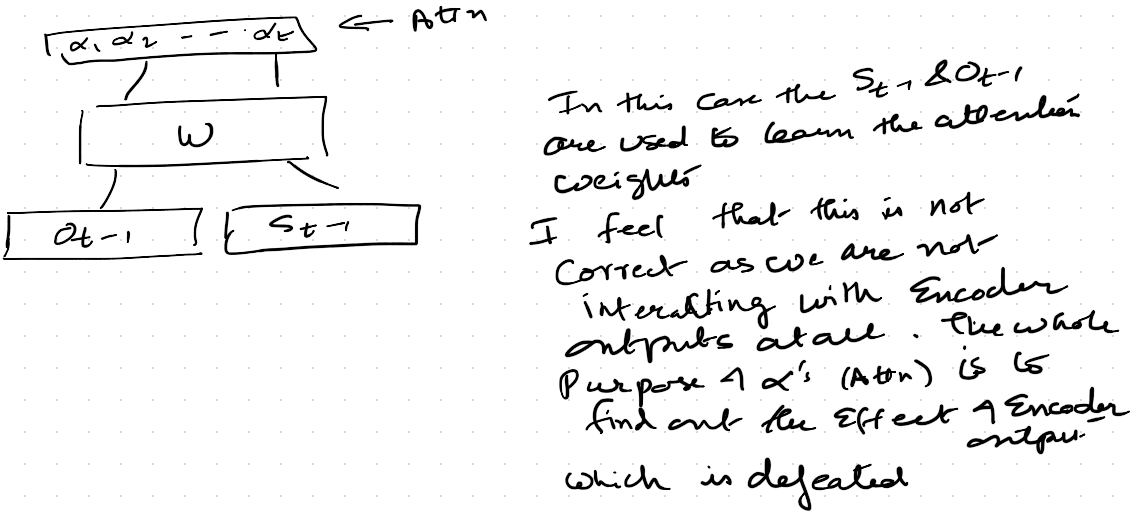 α₁ α₂ - - · αt ← Attn
W
Ot-1 St-1
In this case the St-1 & Ot-1
are used to learn the attention
weights
I feel that this is not
Correct as we are not
interacting with Encoder
outputs at all. The whole
Purpose of α's (Attn) is to
find out the Effect of Encoder
output
which is defeated